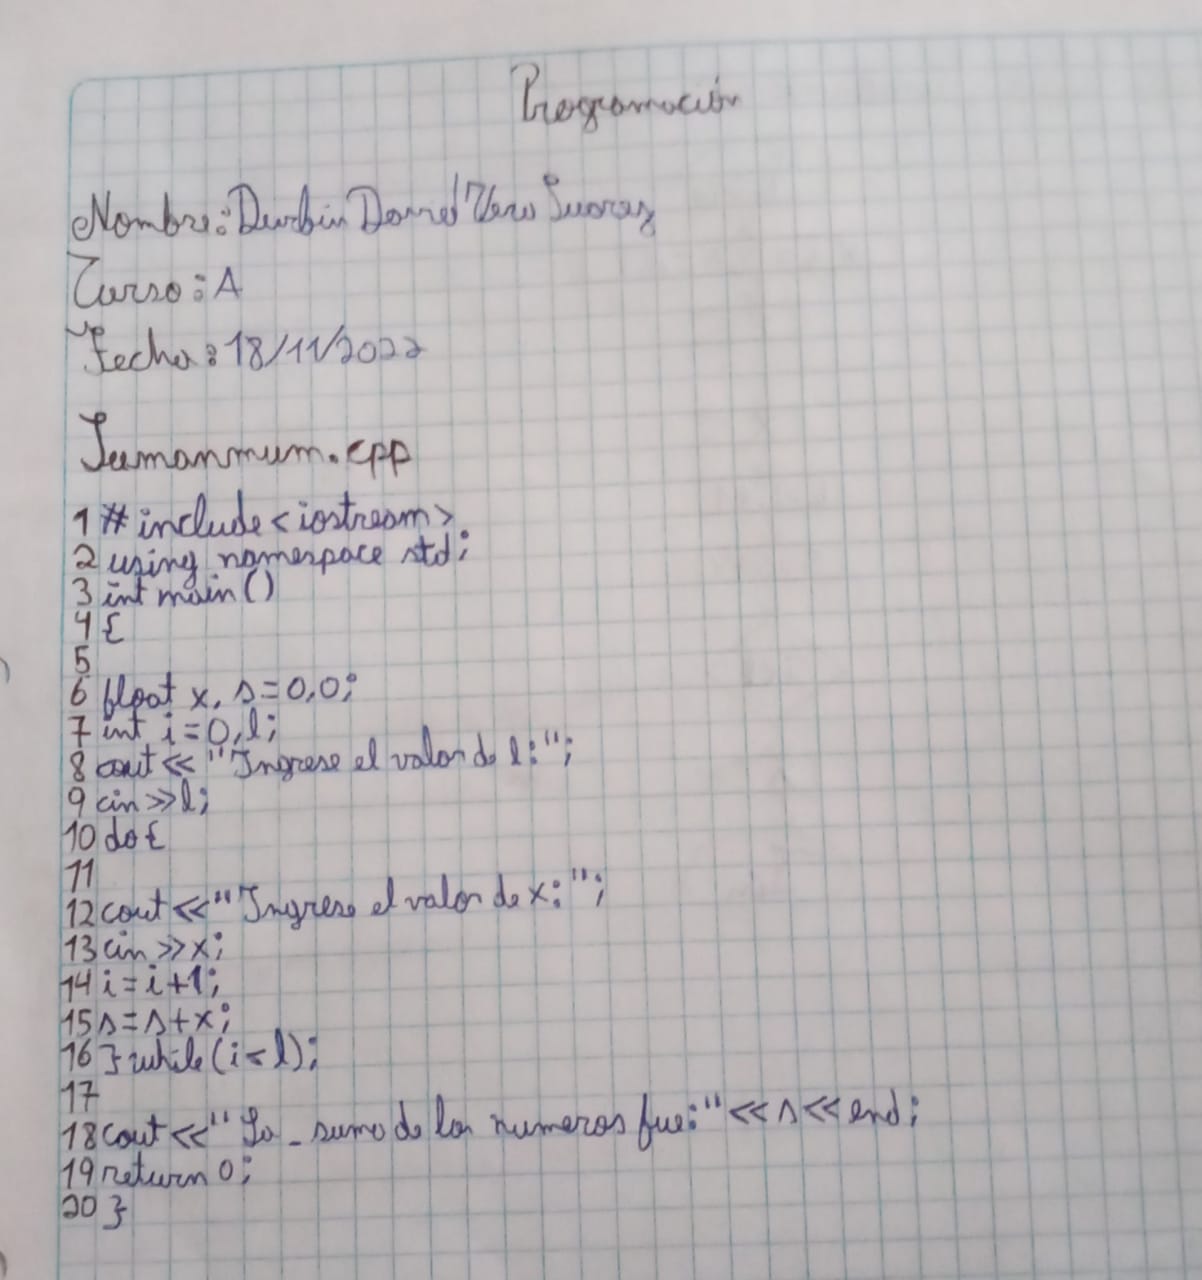 Programación
Nombre: Durbin Darrel Vera Suarez
Curso: A
Fecha: 18/11/2022
Sumanmum.cpp
1 # include <iostream>
2 using namespace std;
3 int main()
4 {
5
6 float x, s=0,0;
7 int i=0,l;
8 cout<< "Ingrese el valor de l:";
9 cin>>l;
10 do{
11
12 cout<<"Ingrese el valor de x:";
13 cin>>x;
14 i=i+1;
15 s=s+x;
16 } while(i<l);
17
18 cout<<"La_suma de los numeros fue:"<<s<<end;
19 return 0;
20 }